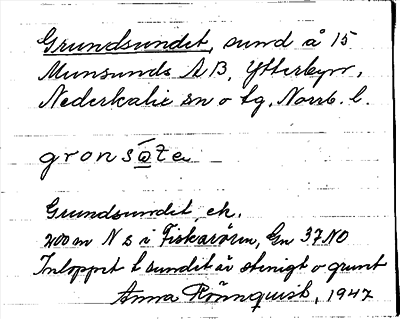 Grundsundet, sund å 15
Munsunds AB, Ytterbyn,
Nederkalix sn o tg. Norrb. l.
gronsώte
Grundsundet, ek.
200 m N s i Fiskarören, Gn 37 NO
Inloppet t sundet är stenigt o grunt
Anna Rönnquist, 1947